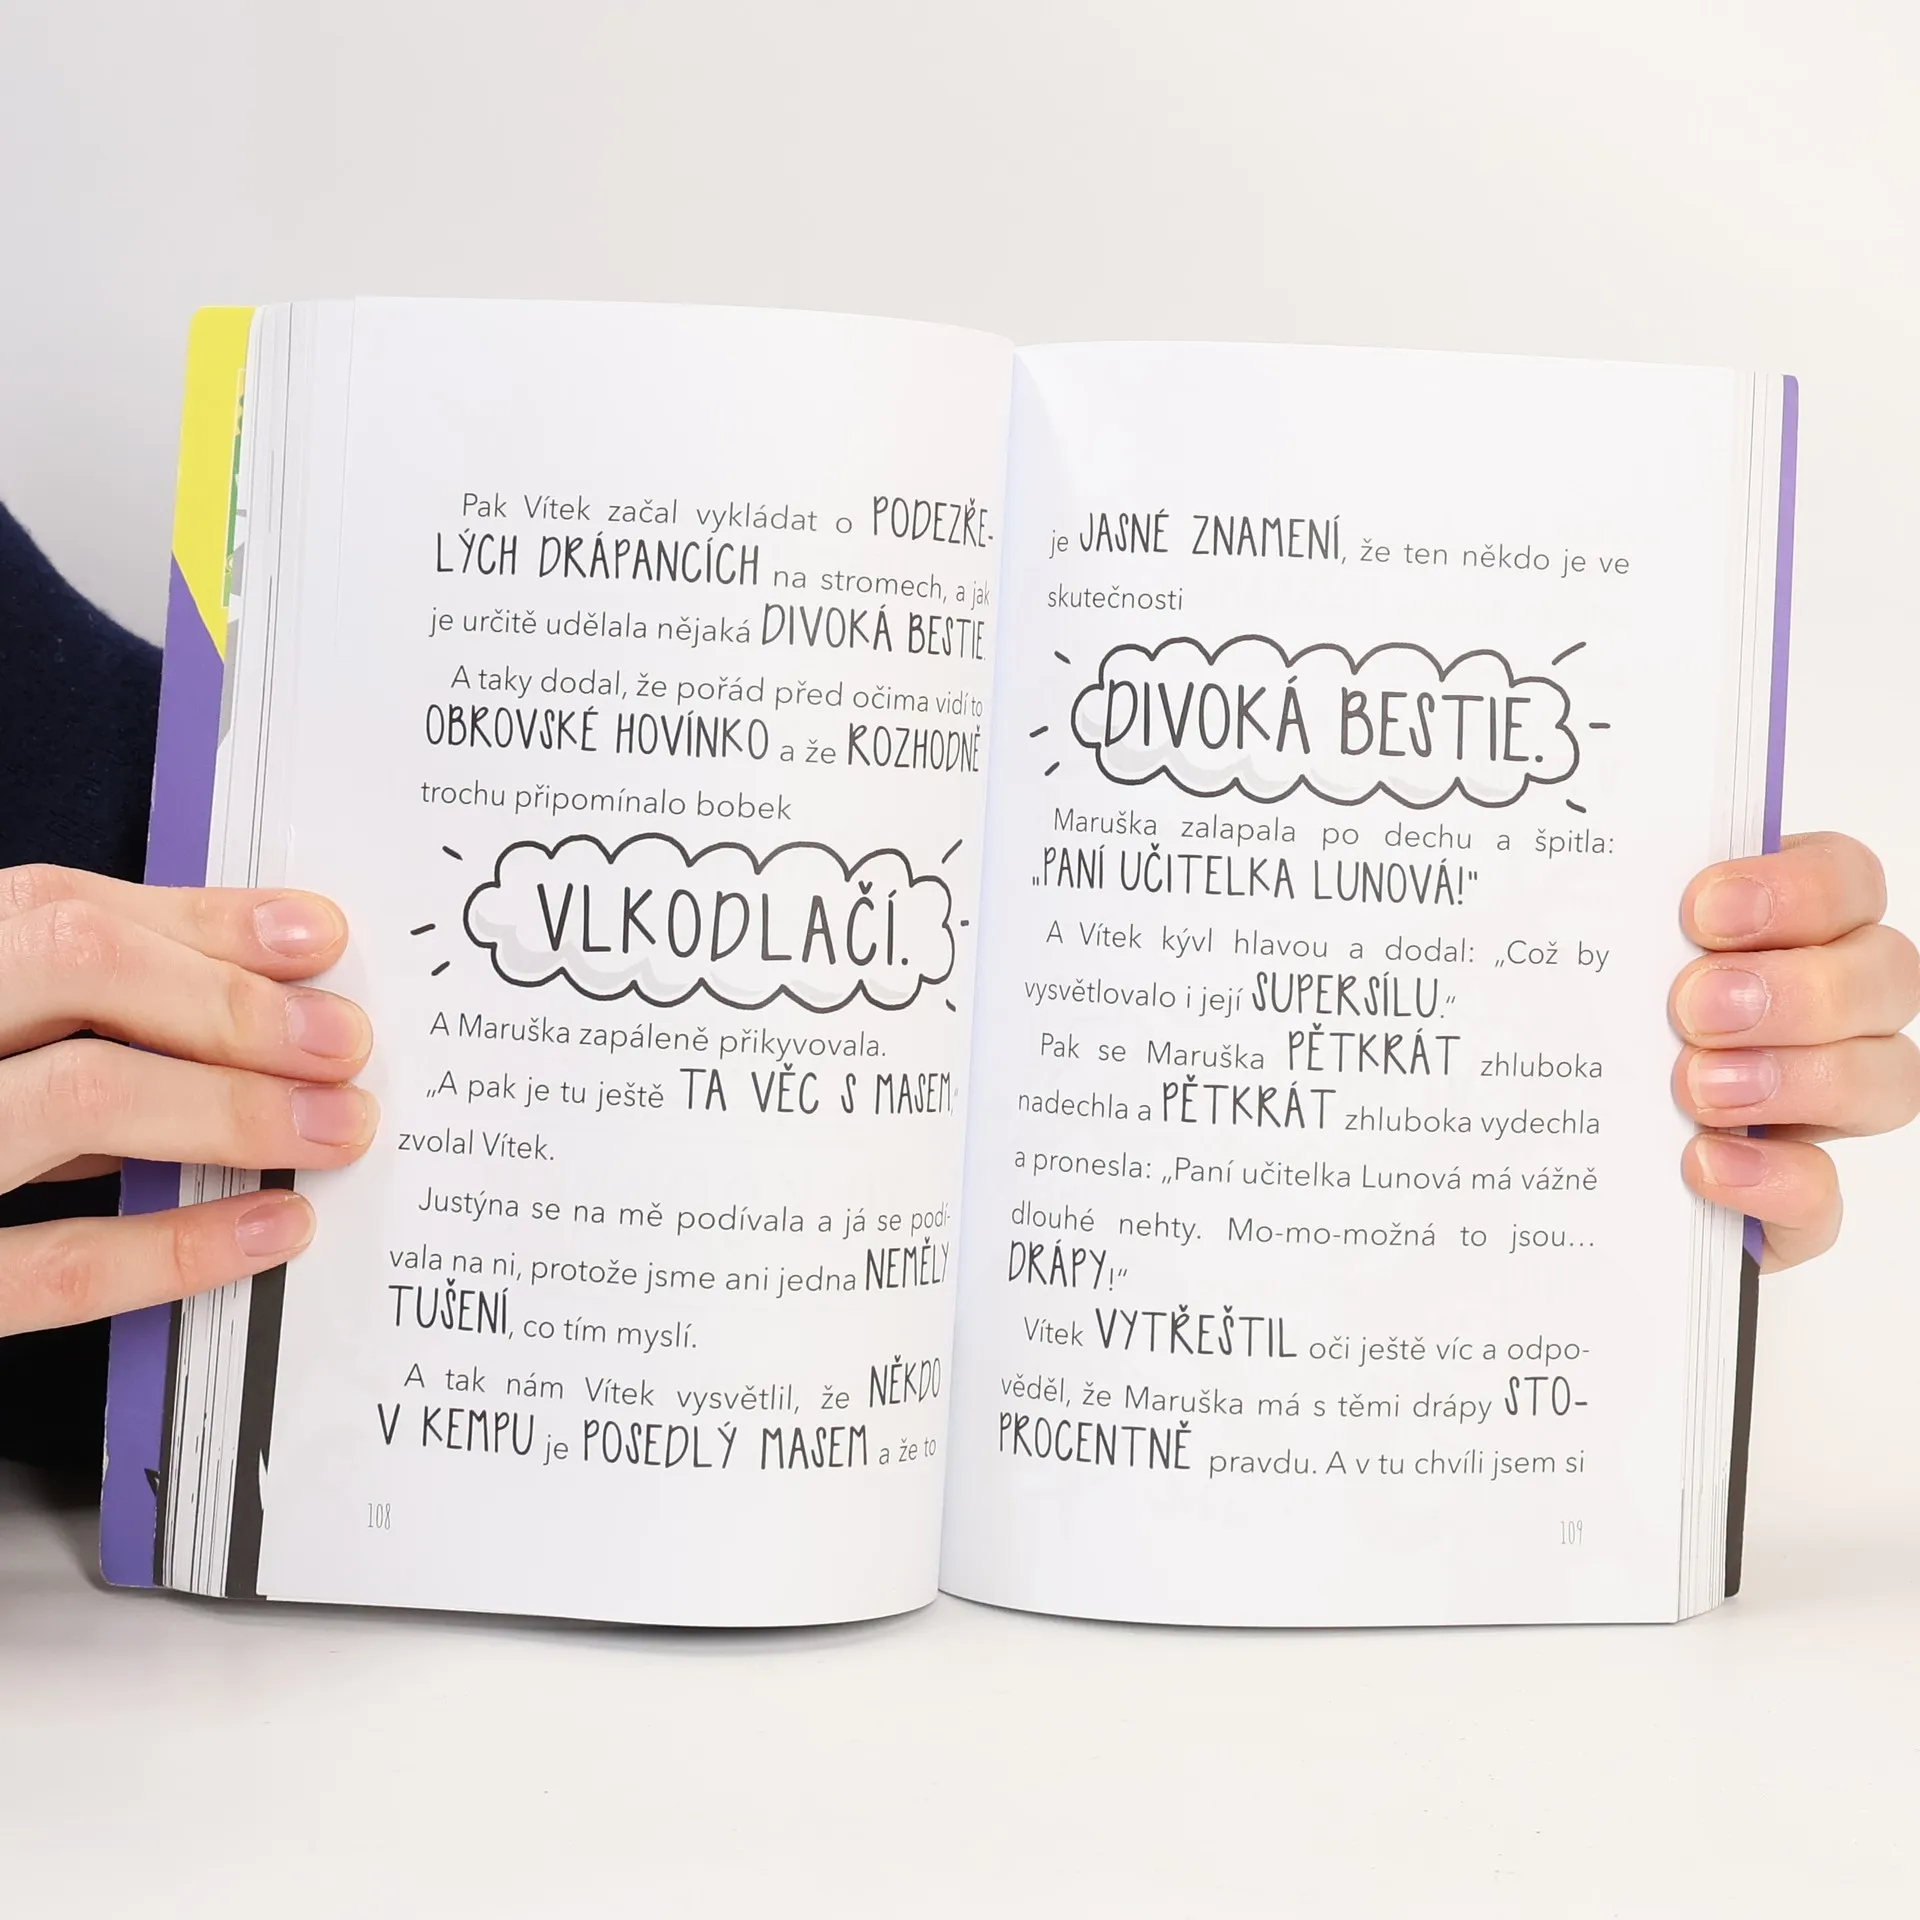 Pak Vítek začal vykládat o PODEZŘE-
LÝCH DRÁPANCÍCH na stromech, a jak
je určitě udělala nějaká DIVOKÁ BESTIE.
A taky dodal, že pořád před očima vidí to
OBROVSKÉ HOVÍNKO a že ROZHODNĚ
trochu připomínalo bobek
VLKODLAČÍ.
A Maruška zapáleně přikyvovala.
„A pak je tu ještě TA VĚC S MASEM,“
zvolal Vítek.
Justýna se na mě podívala a já se podí-
vala na ni, protože jsme ani jedna NEMĚLY
TUŠENÍ, co tím myslí.
A tak nám Vítek vysvětlil, že NĚKDO
V KEMPU je POSEDLÝ MASEM a že to
108
je JASNÉ ZNAMENÍ, že ten někdo je ve
skutečnosti
DIVOKÁ BESTIE.
Maruška zalapala po dechu a špitla:
„PANÍ UČITELKA LUNOVÁ!"
A Vítek kývl hlavou a dodal: „Což by
vysvětlovalo i její SUPERSÍLU.“
Pak se Maruška PĚTKRÁT zhluboka
nadechla a PĚTKRÁT zhluboka vydechla
a pronesla: „Paní učitelka Lunová má vážně
dlouhé nehty. Mo-mo-možná to jsou...
DRÁPY!“
Vítek VYTŘEŠTIL oči ještě víc a odpo-
věděl, že Maruška má s těmi drápy STO-
PROCENTNĚ pravdu. A v tu chvíli jsem si
109